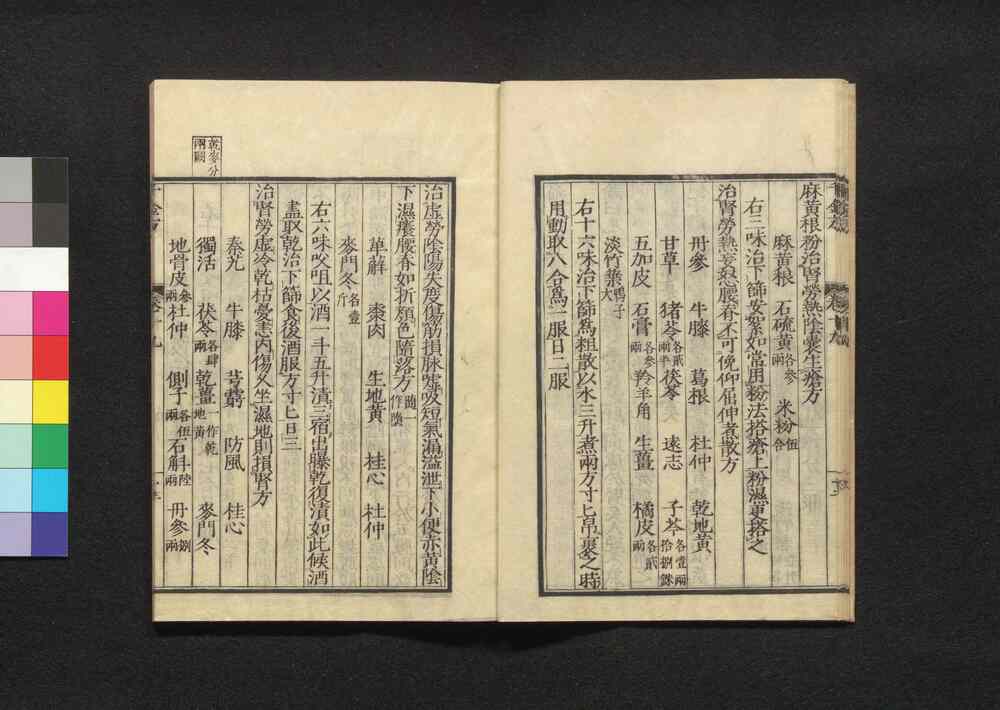 麻黄根粉治腎勞熱陰囊生瘡方
麻黄根 石硫黄各參兩 米粉伍合
右三味治下篩安絮如常用粉法搭瘡上粉濕更搭之
治腎勞熱妄怒腰脊不可俛仰屈伸煮散方
丹參 牛膝 葛根 杜仲 乾地黄
甘草 猪苓各貳兩半 茯苓 遠志 子芩各壹兩拾捌銖
五加皮 石膏各參兩 羚羊角 生薑 橘皮各貳兩
淡竹葉鴨子大
右十六味治下篩爲粗散以水三升煮兩方寸匕帛裹之時
用動取八合爲一服日二服
治虚勞陰陽失度傷筋損脉嘘吸短氣漏溢泄下小便赤黄陰
下濕癢腰脊如折顔色隨落方隨一作墮
萆薢 棗肉 生地黄 桂心 杜仲
麥門冬各壹斤
右六味㕮咀以酒一斗五升漬三宿出曝乾復漬如此候酒
盡取乾治下篩食後酒服方寸匕日三
治腎勞虚冷乾枯憂恚内傷久坐濕地則損腎方
秦艽 牛膝 芎藭 防風 桂心
獨活 茯苓各肆兩 乾薑一作乾地黄 麥門冬
地骨皮各參兩 杜仲 側子各伍兩 石斛陸兩 丹參捌兩
乾麥分兩闕